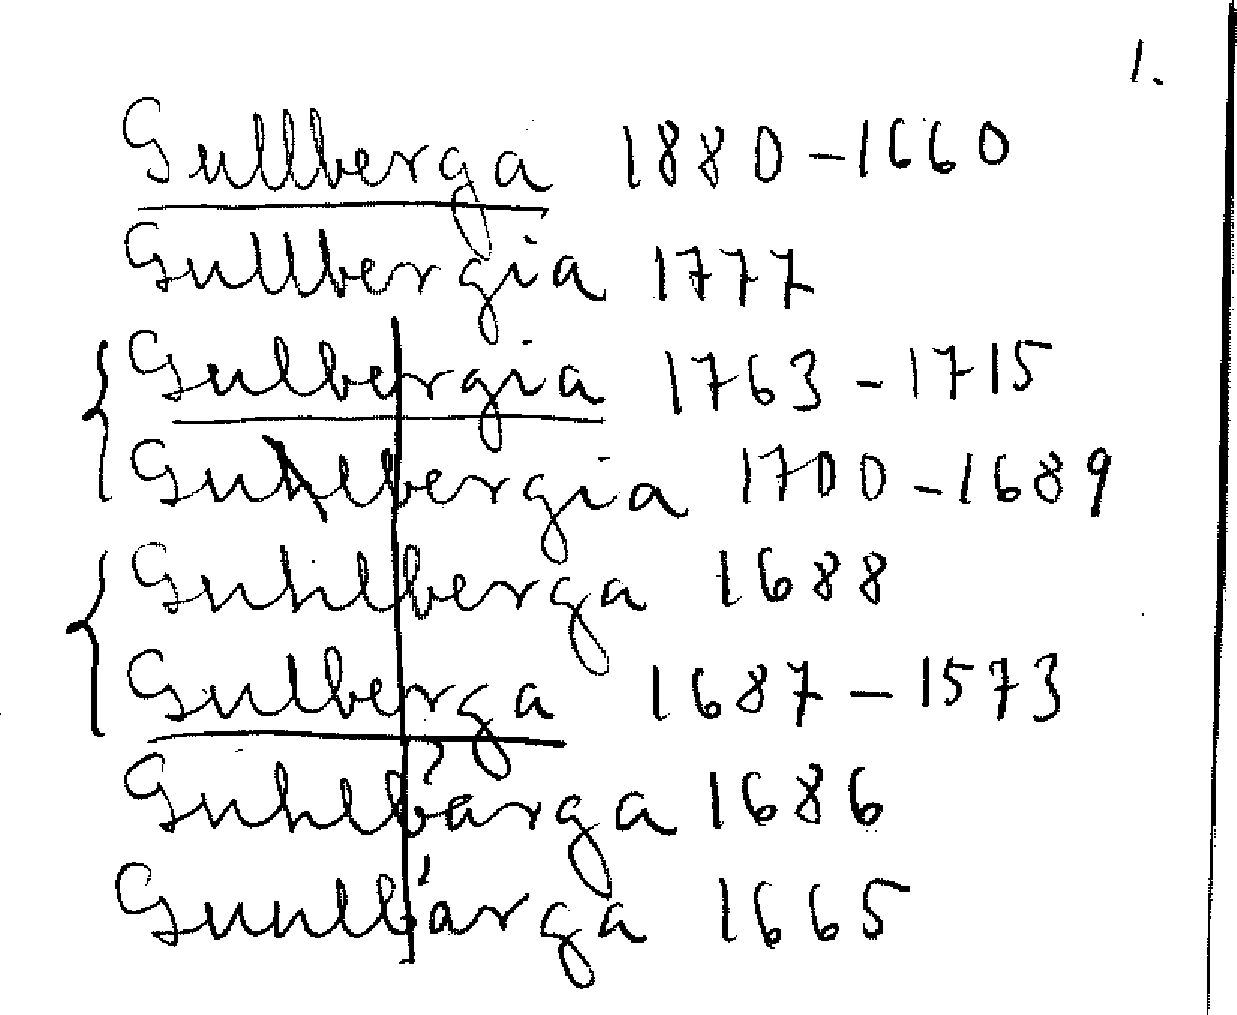 1.
Gullberga 1880-1660
Gullbergia 1777
Gulbergia 1763-1715
Guhlbergia 1700-1689
Guhlberga 1688
Gulberga 1687-1573
Guhlbärga 1686
Gunlbärga 1665